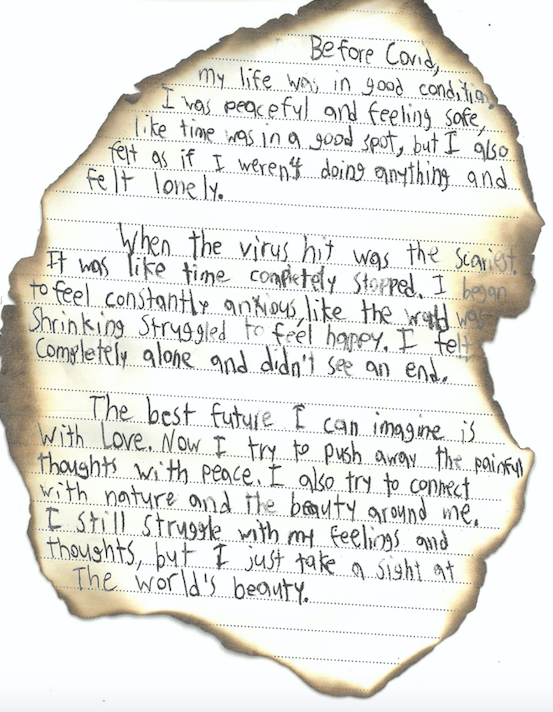 Before Covid,
my life was in good condition.
I was peaceful and feeling safe,
like time was in a good spot, but I also
felt as if I weren't doing anything and
felt lonely.
When the virus hit was the scariest.
It was like time completely stopped. I began
to feel constantly anxious, like the world was
Shrinking Struggled to feel happy. I felt
Completely alone and didn't see an end.
The best future I can imagine is
With Love. Now I try to push away the painful
thoughts with peace. I also try to connect
with nature and the beauty around me.
I still struggle with my feelings and
thoughts, but I just take a sight at
The world's beauty.